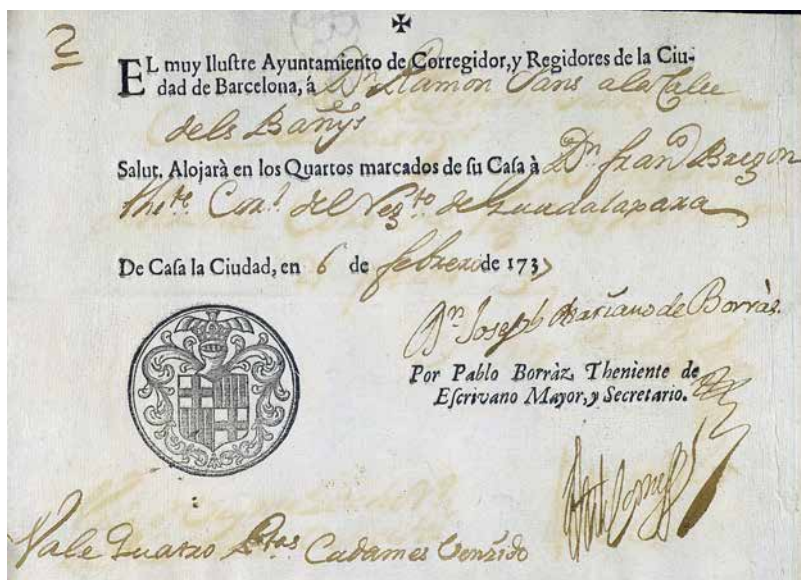 2
EL muy Iluſtre Ayuntamiento de Corregidor, y Regidores de la Ciu-
dad de Barcelona, á Dn Ramon Sans a la Calle
dels Bañys
Salut. Alojarà en los Quartos marcados de ſu Caſa à Dn franco
Thte Coronl del Regto de Guadalaxara
De Caſa la Ciudad, en 6 de febrero de 1737
Dn Joseph Mariano de Borràz.
Por Pablo Borràz Theniente de
Eſcrivano Mayor, y Secretario.
Vale Quatro Cadames Venzido